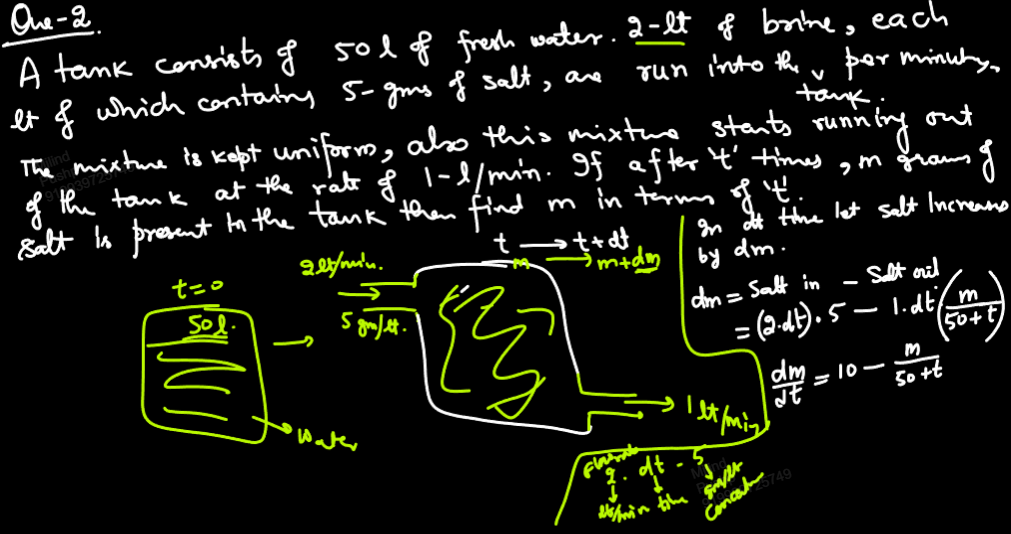 Que-2.
A tank consists of 50 l of fresh water. 2-lt of brine, each
lt of which contains 5-gms of salt, are run into the tank per minute.
The mixture is kept uniform, also this mixture starts running out
of the tank at the rate of 1-l/min. If after 't' times, m grams of
salt is present in the tank then find m in terms of 't'.
t=0
50l.
Water
2lt/min.
5 gm/lt.
t → t+dt
m → m+dm
1 lt/min
In dt time let salt Increases
by dm.
dm = Salt in - Salt out
= (2.dt).5 - 1.dt(m/50+t)
dm/dt = 10 - m/50+t
2. dt . 5
lt/min time gm/lt